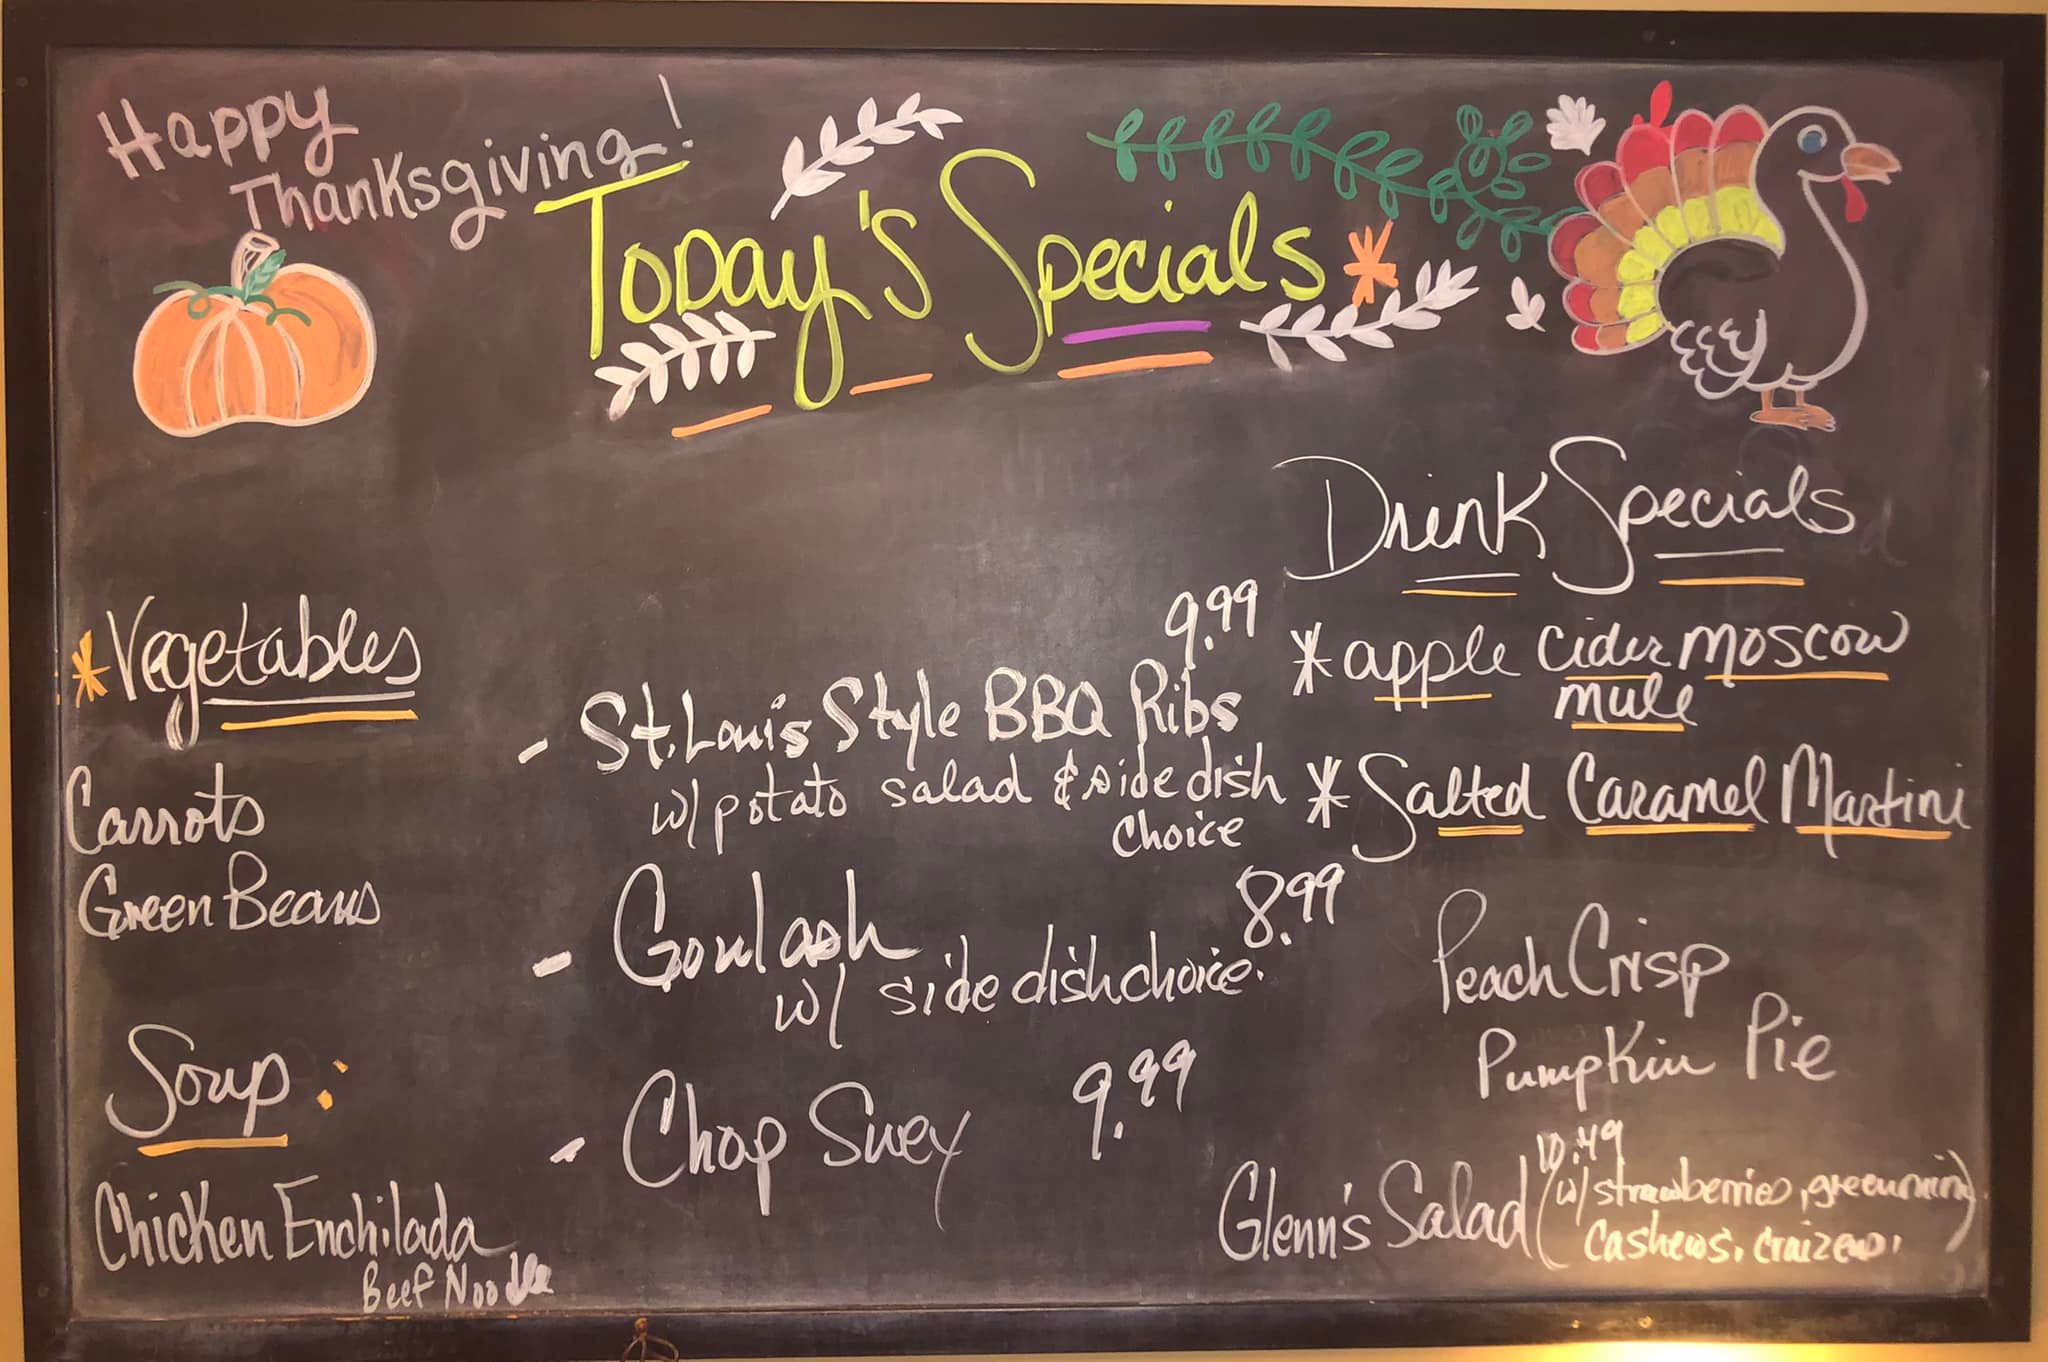 Happy
Thanksgiving!
Today's Specials
*Vegetables
Carrots
Green Beans
Soup:
Chicken Enchilada
Beef Noodle
9.99
- St. Louis Style BBQ Ribs
w/ potato salad & side dish
choice
8.99
- Goulash
w/ side dish choice.
- Chop Suey 9.99
Drink Specials
*apple cider moscow
mule
*Salted Caramel Martini
Peach Crisp
Pumpkin Pie
10.49
Glenn's Salad (w/ strawberries,
cashews,